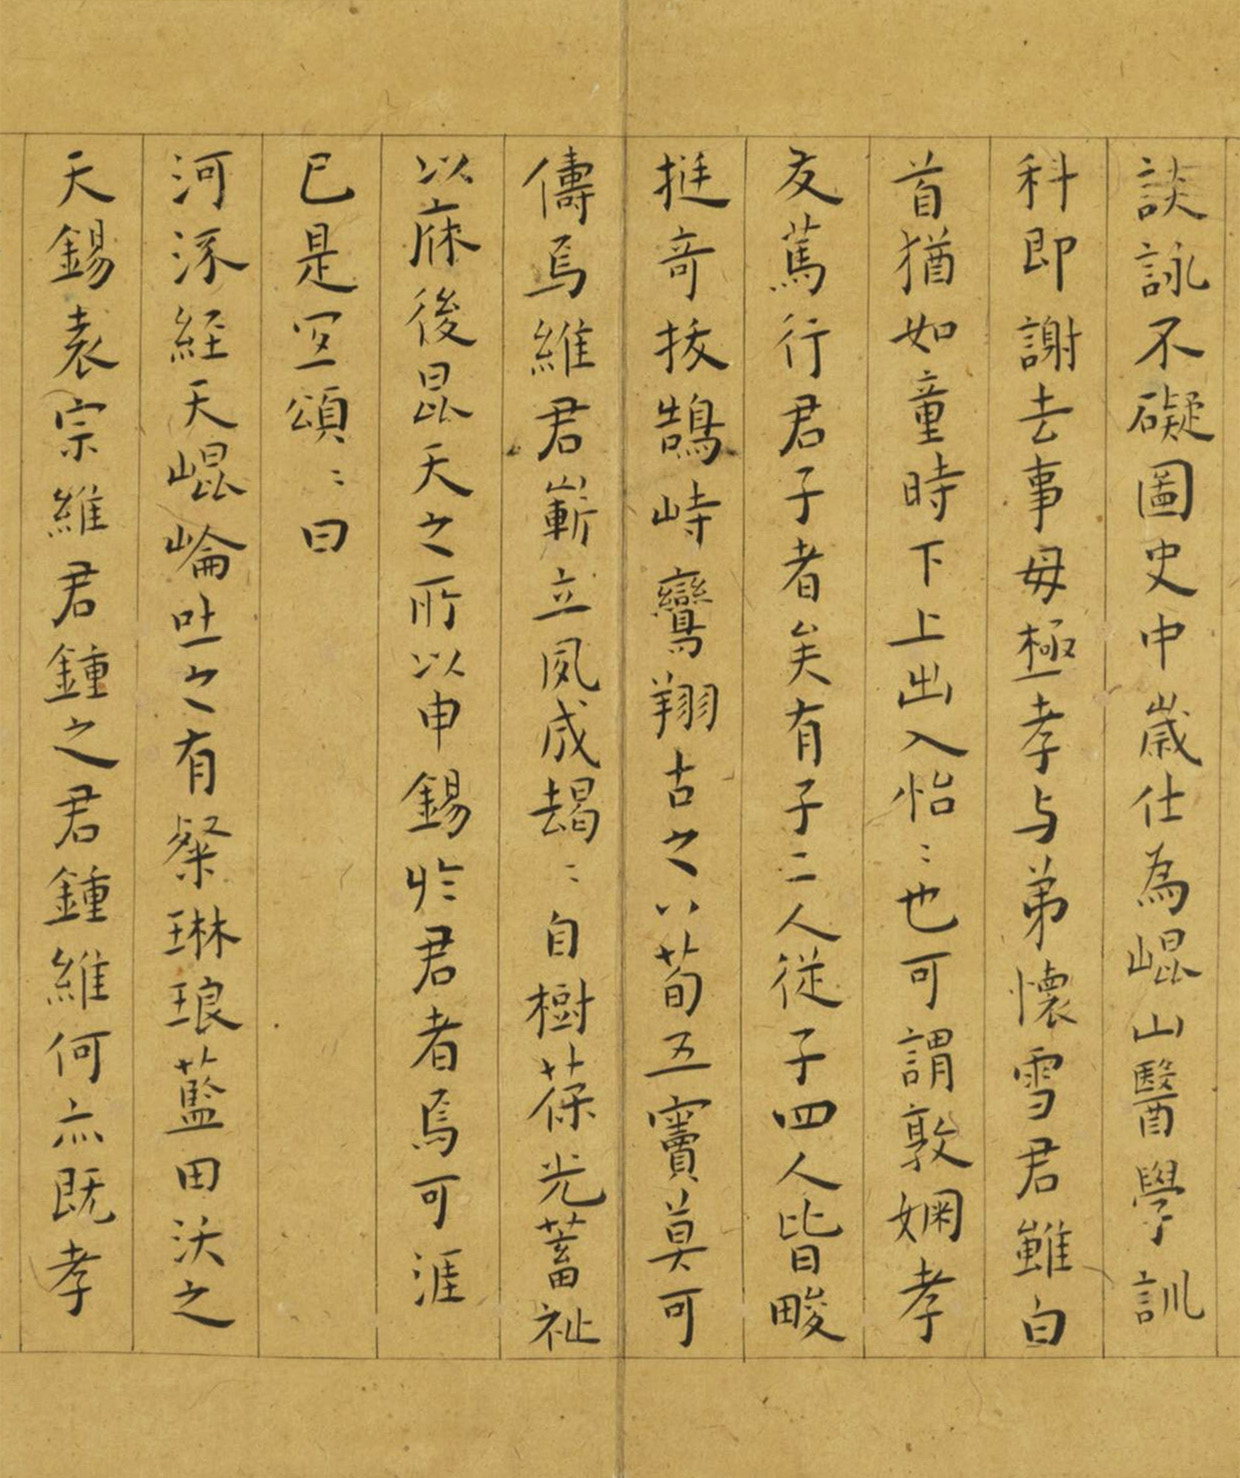 談詠不礙圖史中歲仕為崐山醫學訓
科即謝去事母極孝与弟懷雪君雖白
首猶如童時下上出入怡〻也可謂敦婣孝
友篤行君子者矣有子二人從子四人皆畯
挺奇拔鵠峙鸞翔古之八荀五竇莫可
儔焉維君嶄立夙成朅〻自樹葆光蓄祉
以庥後昆天之所以申錫於君者焉可涯
已是宜頌〻曰
河涿經天崐崘吐之有粲琳琅藍田沃之
天錫袁宗維君鍾之君鍾維何亦既孝